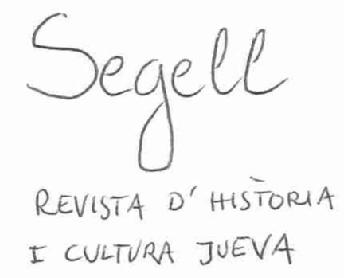 Segell
REVISTA D' HISTÒRIA
I CULTURA JUEVA